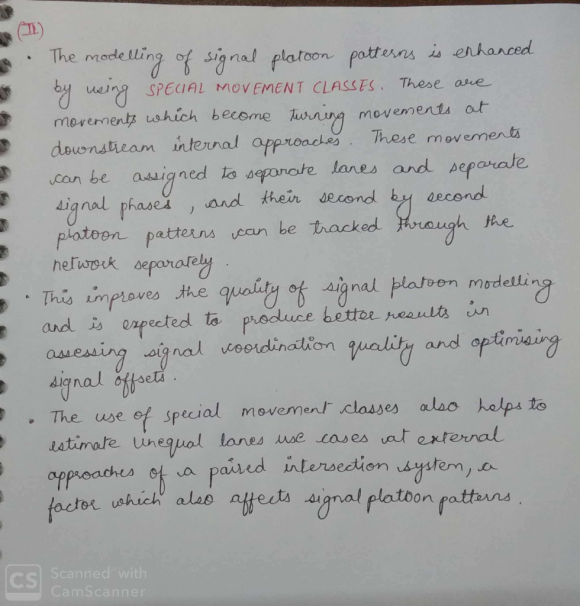 (II)
• The modelling of signal platoon patterns is enhanced
by using SPECIAL MOVEMENT CLASSES. These are
movements which become turning movements at
downstream internal approaches. These movements
can be assigned to separate lanes and separate
signal phases, and their second by second
platoon patterns can be tracked through the
network separately.
• This improves the quality of signal platoon modelling
and is expected to produce better results in
assessing signal coordination quality and optimising
signal offsets.
• The use of special movement classes also helps to
estimate unequal lanes use cases at external
approaches of a paired intersection system, a
factor which also affects signal platoon patterns.
CS Scanned with
CamScanner